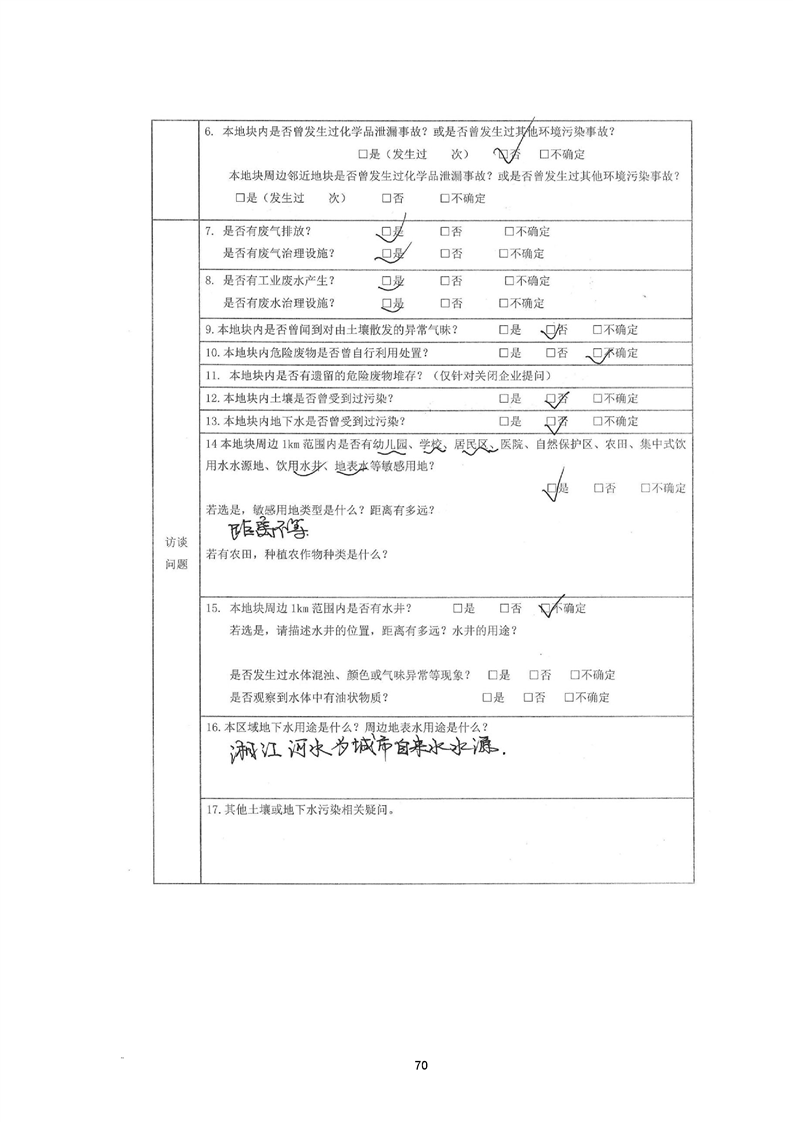 6. 本地块内是否曾发生过化学品泄漏事故？或是否曾发生过其他环境污染事故？
□是（发生过 次） □否 □不确定
本地块周边邻近地块是否曾发生过化学品泄漏事故？或是否曾发生过其他环境污染事故？
□是（发生过 次） □否 □不确定
访谈
问题
7. 是否有废气排放？ □是 □否 □不确定
是否有废气治理设施？ □是 □否 □不确定
8. 是否有工业废水产生？ □是 □否 □不确定
是否有废水治理设施？ □是 □否 □不确定
9.本地块内是否曾闻到对由土壤散发的异常气味？ □是 □否 □不确定
10.本地块内危险废物是否曾自行利用处置？ □是 □否 □不确定
11. 本地块内是否有遗留的危险废物堆存？（仅针对关闭企业提问）
12.本地块内土壤是否曾受到过污染？ □是 □否 □不确定
13.本地块内地下水是否曾受到过污染？ □是 □否 □不确定
14本地块周边1km范围内是否有幼儿园、学校、居民区、医院、自然保护区、农田、集中式饮
用水水源地、饮用水井、地表水等敏感用地？
□是 □否 □不确定
若选是，敏感用地类型是什么？距离有多远？
距离不等
若有农田，种植农作物种类是什么？
15. 本地块周边1km范围内是否有水井？ □是 □否 □不确定
若选是，请描述水井的位置，距离有多远？水井的用途？
是否发生过水体混浊、颜色或气味异常等现象？ □是 □否 □不确定
是否观察到水体中有油状物质？ □是 □否 □不确定
16.本区域地下水用途是什么？周边地表水用途是什么？
江河水为城市自来水水源.
17.其他土壤或地下水污染相关疑问。
70